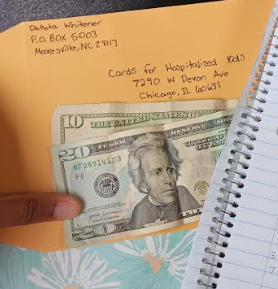 Dakota Whitener
P.O. BOX 5003
Mooresville, NC 28117
Cards for Hospitalized Kids
7290 W Devon Ave
Chicago, IL 60631
10 THE UNITED STATES
20 FEDERAL RESERVE
F6
20